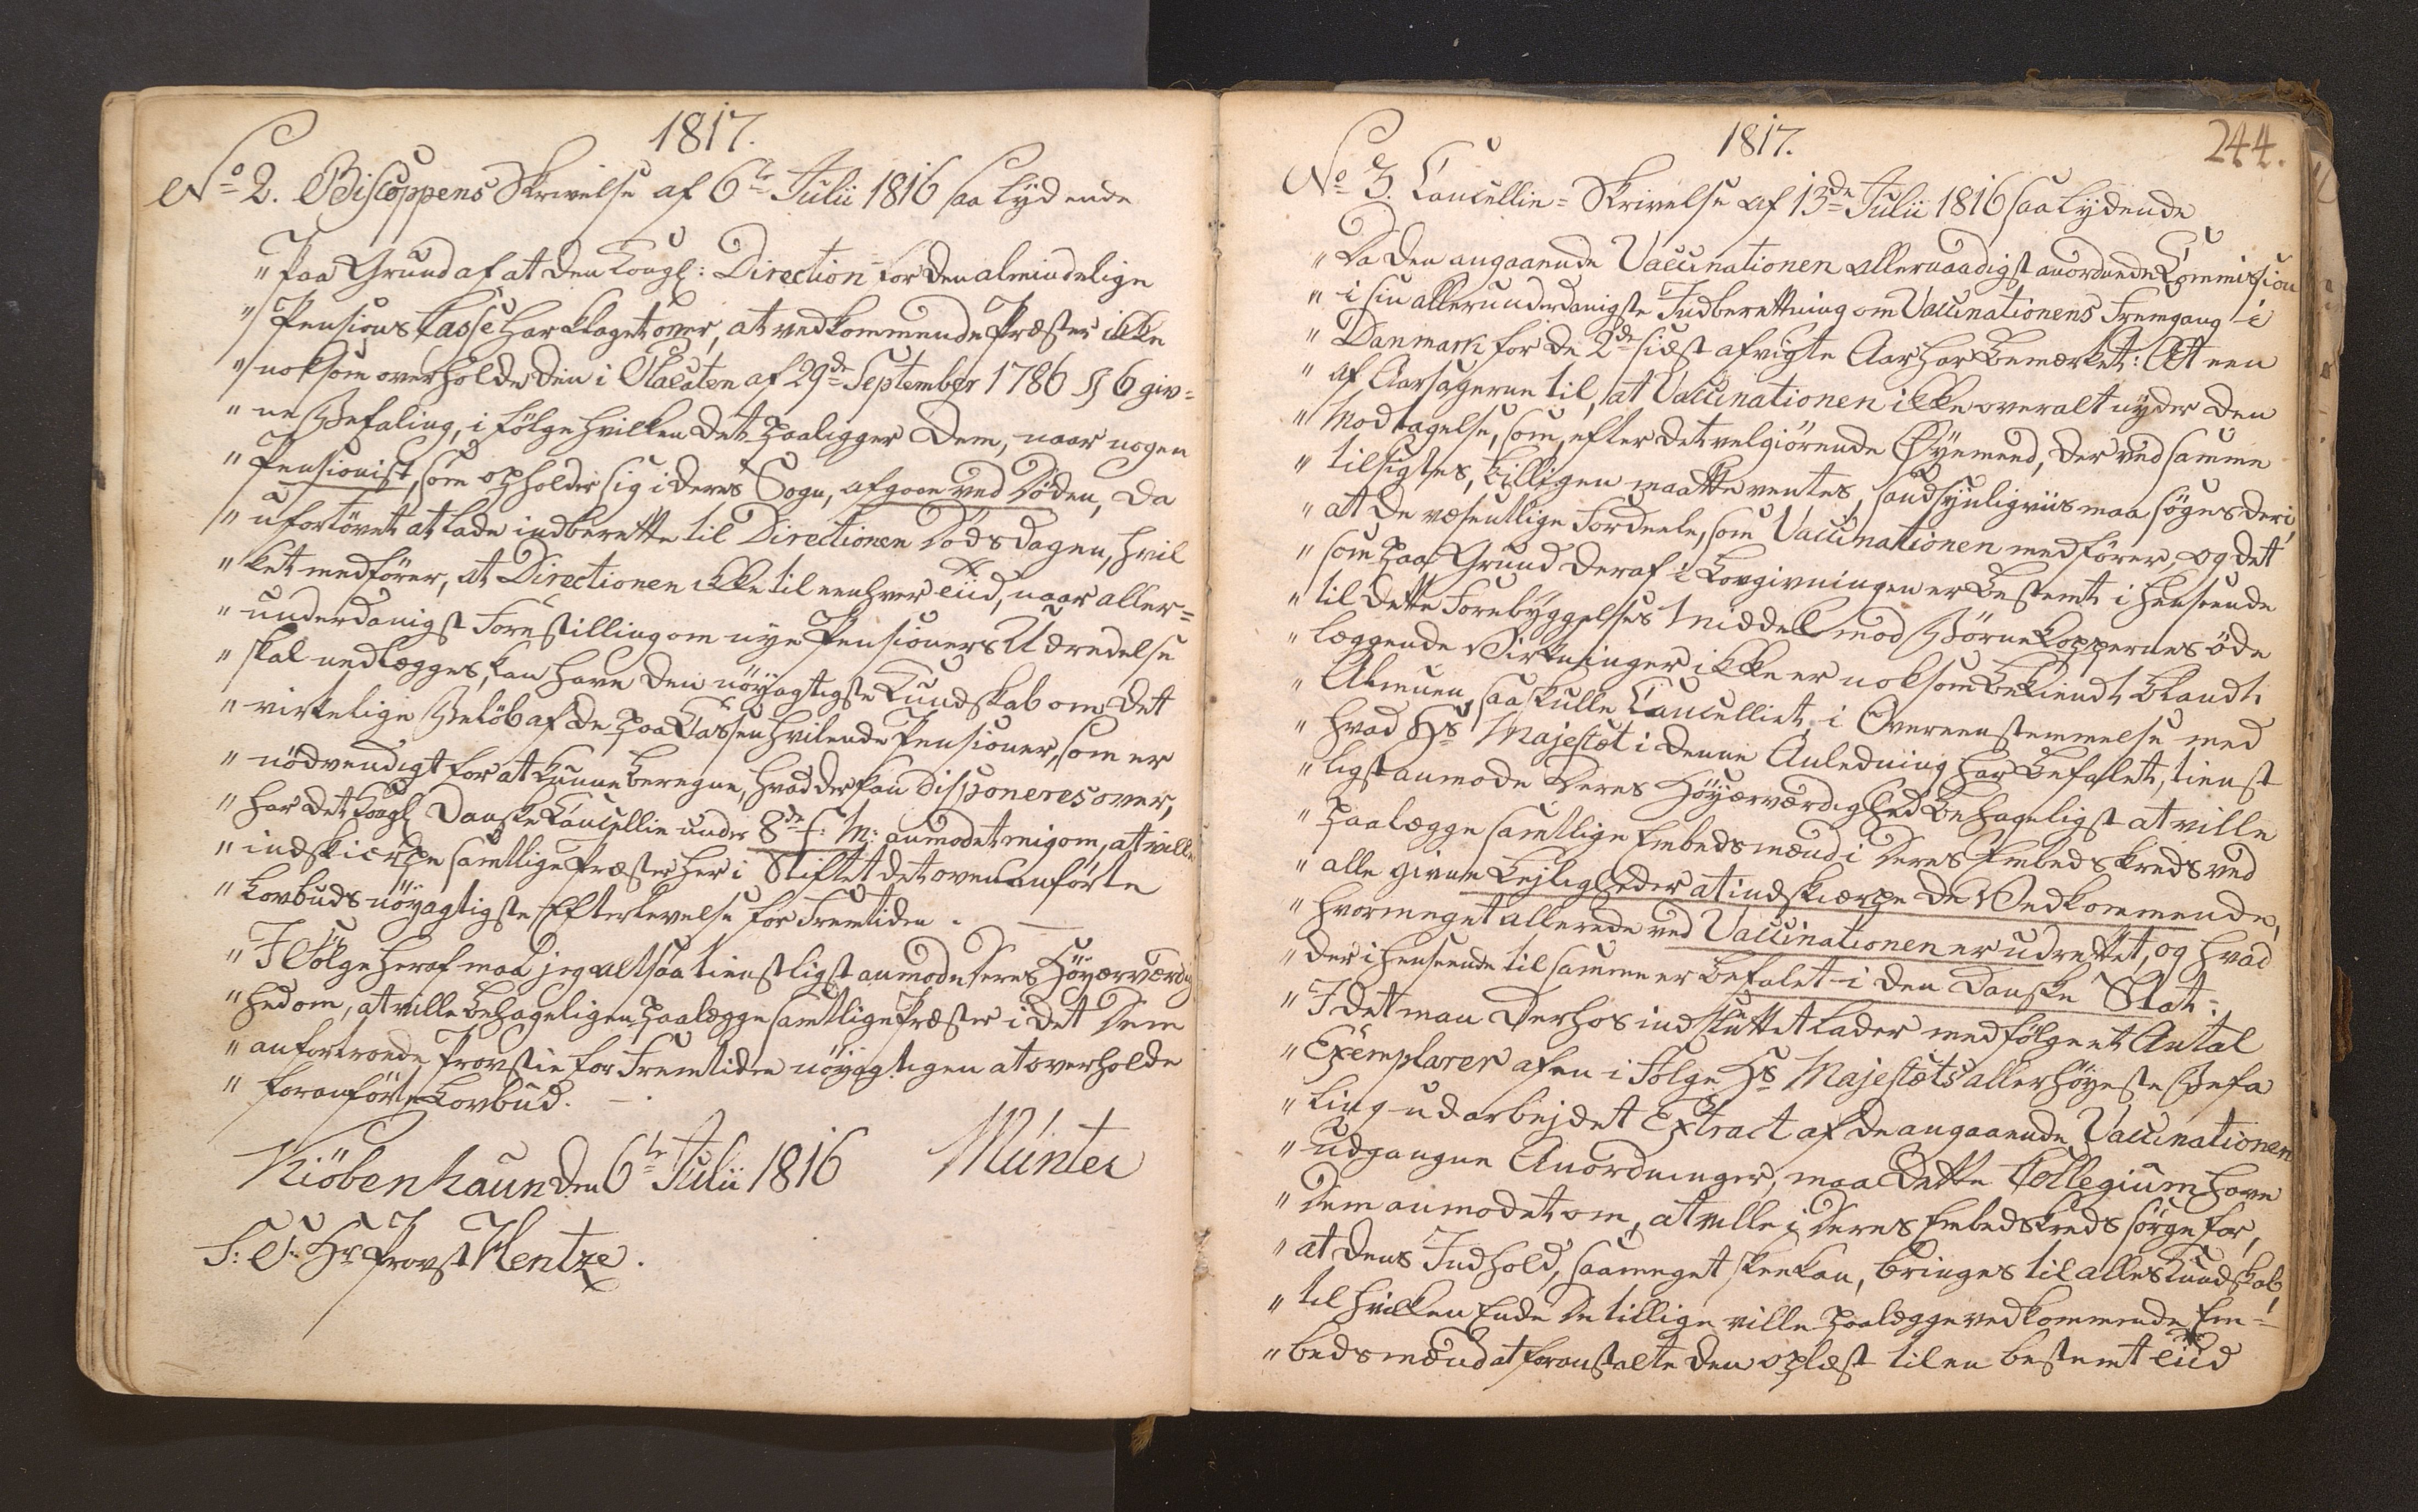 1817.
No 2. Biscoppens Skrivelse af 6te Julii 1816 saa lydende
" Paa Grund af at den Kongl: Direction for den almindelige
" Pensions Casse har klaget over, at vedkommende Præster ikke
" noksom overholde den i Placaten af 29de September 1786 § 6 giv=
" ne Befaling, i følge hvilken det paaligger Dem, naar nogen
" Pensionist, som opholder sig i deres Sogn, afgaaer ved Døden, da
" ufortövet at lade indberette til Directionen Dödsdagen, hvil
" ket medförer, at Directionen ikke til eenhver Tiid, naar aller=
" underdanigst Forestilling om nye Pensioners Udredelse
" skal nedlægges, kan have den nöyagtigste Kundskab om det
" virkelige Belöb af de paa Cassen hvilende Pensioner, som er
" nödvendigt for at kunne beregne, hvad der kan disponeres over,
" har det Kongl Danske Cancellie under 8de f: M: anmodet mig om, at ville
" indskierpe samtlige Præster her i Stiftet det ovenanförte
" Lovbuds nöyagtigste Efterlevelse for Fremtiden.
" I Fölge heraf maa jeg altsaa tienstligst anmode Deres Höyærværdig
" hed om, at ville behageligen paalægge samtlige Præster i det Dem
" anfortroede Provstie for Fremtiden nöyagtigen at overholde
" foranförte Lovbud.
Kiöbenhaun den 6te Julii 1816 Münter
S: T. Hr Provst Hentze.
1817. 244.
No 3. Cancellie=Skrivelse af 13de Julii 1816 saa lydende
" Da den angaaende Vaccinationen allernaadigst anordnede Commission
" i sin allerunderdanigste Indberettning om Vaccinationens Fremgang i
" Danmark for de 2de sidst afvigte Aar har bemærket: At een
" af Aarsagerne til, at Vaccinationen ikke overalt nyder den
" Modtagelse, som, efter det velgiörende Öyemeed, der ved samme
" tilsigtes, billigen maatte ventes, sandsynligviis maa söges deri,
" at de væsentlige Fordeele, som Vaccinationen medförer, og det
" som paa Grund deraf i Lovgivningen er bestemt i Henseende
" til dette Forebyggelses Middel mod Börnekoppernes öde
" læggende Virkninger ikke er noksom bekiendt blandt
" Almuen, saa skulle Cancelliet i Overeenstemmelse med
" hvad Hs Majestæt i denne Anledning har befalet, tienst
" ligst anmode Deres Höyærværdighed behageligst at ville
" paalægge samtlige Embedsmænd i Deres Embedskreds ved
" alle givne Lejligheder at indskiærpe de Vedkommende,
" hvormeget allerede ved Vaccinationen er udrettet, og hvad
" der i Henseende til samme er befalet i den Danske Stat:
" I det man derhos indsluttet lader medfölge et Antal
" Exemplarer af en i Fölge Hs Majestæts allerhöyeste Befa
" ling udarbejdet Extract af de angaaende Vaccinationen
" udgangne Anordninger, maa dette Collegium have
" Dem anmodet om, at ville i Deres Embedskreds sörge for,
" at dens Indhold, saameget skee kan, bringes til alles Kundskab,
" til hvilken Ende De tillige ville paalægge vedkommende Em=
" bedsmænd at foranstalte den oplæst til en bestemt Tiid